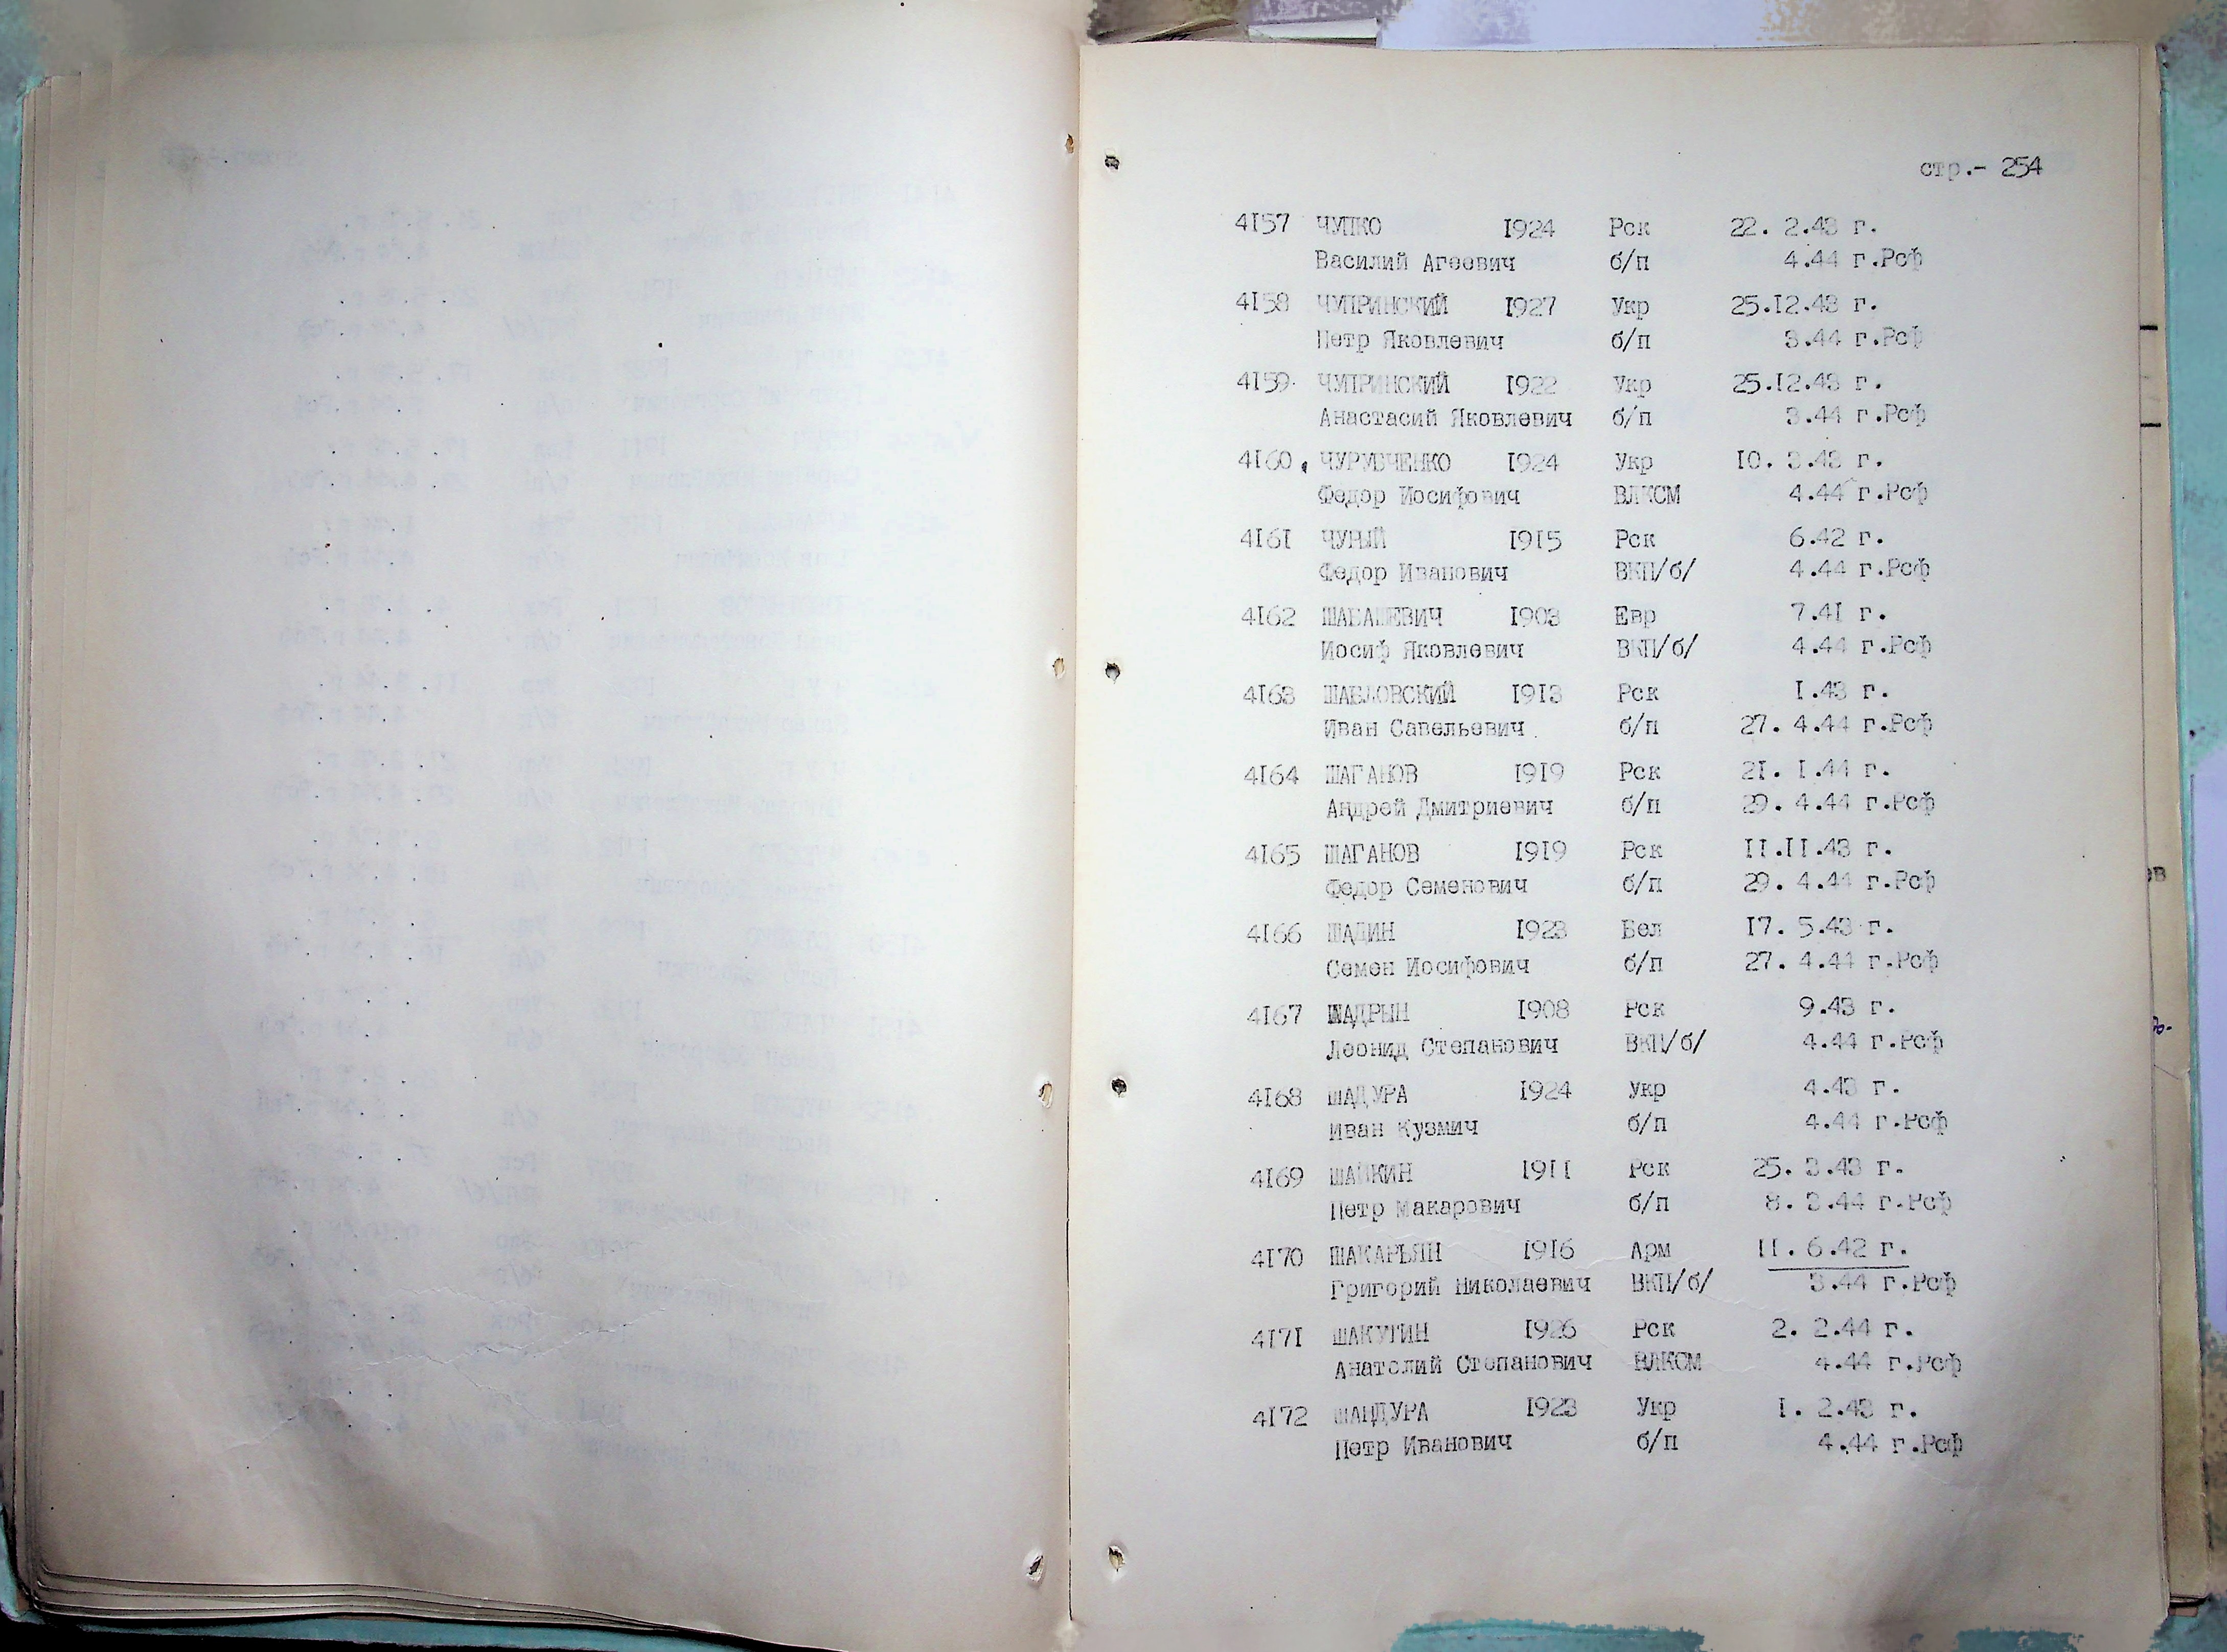 стр.- 254
4I57 ЧУПКО I924 Рск 22. 2.43 г.
Василий Агеевич б/п 4.44 г.Рсф
4I58 ЧУПРИНСКИЙ I927 Укр 25.I2.43 г.
Петр Яковлевич б/п 3.44 г.Рсф
4I59 ЧУПРИНСКИЙ I922 Укр 25.I2.43 г.
Анастасий Яковлевич б/п 3.44 г.Рсф
4I60 I924 Укр I0. 3.43 г.
Федор Иосифович ВЛКСМ 4.44 г.Рсф
4I6I I9I5 Рск 6.42 г.
Федор Иванович ВКП/б/ 4.44 г.Рсф
4I62 ШАБАШЕВИЧ I903 Евр 7.4I г.
Иосиф Яковлевич ВКП/б/ 4.44 г.Рсф
4I63 ШАБЛОВСКИЙ I9I3 Рск I.43 г.
Иван Савельевич б/п 27. 4.44 г.Рсф
4I64 ШАГАНОВ I9I9 Рск 2I. I.44 г.
Андрей Дмитриевич б/п 29. 4.44 г.Рсф
4I65 ШАГАНОВ I9I9 Рск II.II.43 г.
Федор Семенович б/п 29. 4.44 г.Рсф
4I66 ШАДИН I923 Бел I7. 5.43 г.
Семен Иосифович б/п 27. 4.44 г.Рсф
4I67 ШАДРЫН I908 Рск 9.43 г.
Леонид Степанович ВКП/б/ 4.44 г.Рсф
4I68 ШАДУРА I924 Укр 4.43 г.
Иван Кузмич б/п 4.44 г.Рсф
4I69 ШАЙКИН I9II Рск 25. 3.43 г.
Петр Макарович б/п 8. 3.44 г.Рсф
4I70 ШАКАРЬЯН I9I6 Арм II. 6.42 г.
Григорий Николаевич ВКП/б/ 3.44 г.Рсф
4I7I ШАКУТИН I926 Рск 2. 2.44 г.
Анатолий Степанович ВЛКСМ 4.44 г.Рсф
4I72 ШАНДУРА I923 Укр I. 2.43 г.
Петр Иванович б/п 4.44 г.Рсф